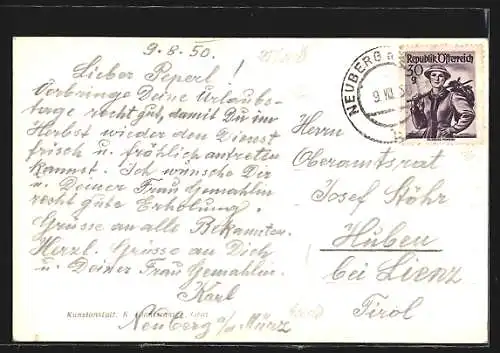 9.8.50.
Lieber Peperl!
Verbringe Deine Urlaubs-
tage recht gut, damit Du im
Herbst wieder den Dienst
frisch u. fröhlich antreten
kannst. Ich wünsche Dir
u. Deiner Frau Gemahlin
recht gute Erholung.
Grüsse an alle Bekannten.
Herzl. Grüsse an Dich
u. Deiner Frau Gemahlin.
Karl
Neuberg a/d Mürz
Kunstanstalt: K.
NEUBERG
Republik Österreich
30
g
Herrn
Oberamtsrat
Josef Stöhr
Huben
bei Lienz
Tirol